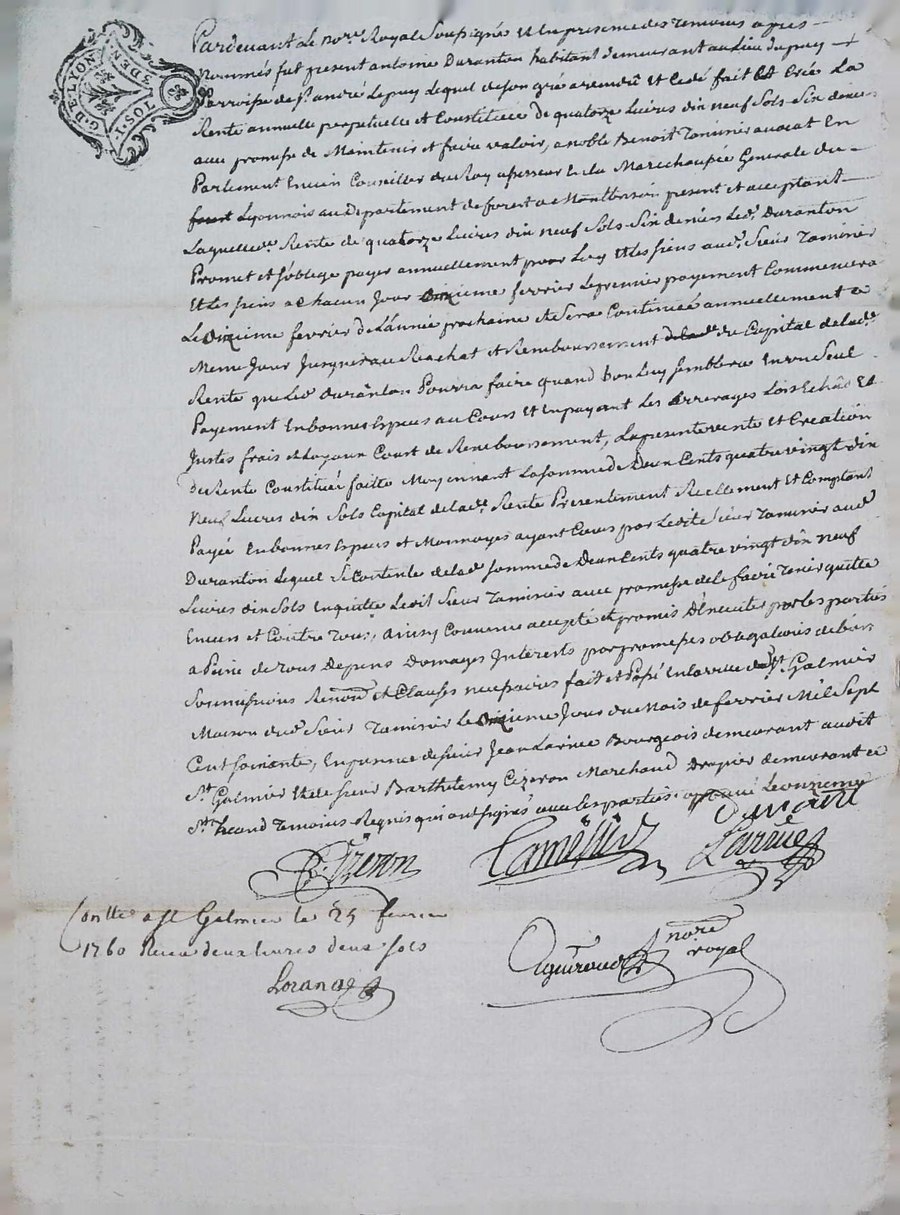 G. D. LYON
1. SOL 3 DEN.
Pardevant Le nore. Royal Soussigné et En presence des temoins apres
nommés fut present antoine Duranton habitant demeurant au lieu du puy
Parroisse de st. andré Le puy Lequel de son gré a vendu et Cedé fait Et Créé La
Rente annuelle perpetuelle et Constituée de quatorze Livres dix neuf Sols Six deniers
avec promesse de Maintenir et faire valoir, a noble Benoit Tamisier avocat En
Parlement Encien Conseiller du Roy assesseur En La Marechaussée Generale du
Lyonnois au departement de forest a Montbrison present et acceptant
Laquelle de. Rente de quatorze Livres dix neuf Sols Six deniers Led. Duranton
Promet et s'oblige payer annuellement pour Luy et Les siens aud. Sieur Tamisier
Et Les siens a Chacun Jour onzieme fevrier Le premier payement Commencera
Le onzieme fevrier de L'année prochaine et Sera Continuée annuellement a
Meme Jour Jusques au Rachat et Remboursement du Capital de lade.
Rente que Led Duranton Pourra faire quand bon Luy semblera En un Seul
Payement En bonnes Especes au Cours et En payant Les Arrerages Lors Echûs Et
Justes frais et Loyaux Cout de Remboursement, La presente vente et Création
de Rente Constituée faitte Moyennant La somme de Deux Cents quatre vingt dix
neuf Livres dix Sols Capital de lade. Rente Presentement Reellement Et Comptant
Payée En bonnes Especes et Monnoyes ayant Cours par Ledit Sieur Tamisier aud
Duranton Lequel Se Contente de lad somme de Deux Cents quatre vingt dix neuf
Livres dix Sols En quitte Ledit Sieur Tamisier avec promesse de Le faire Tenir quitte
Envers et Contre Tous, ainsy Convenu accepté et promis D'Executer par les parties
a Peine de Tous Depens Domages Interets par promesses obligations de biens
Soumissions Renons et Clauses necessaires fait et Passé En la ville de st. Galmier
Maison dud. Sieur Tamisier Le onzieme Jour du Mois de fevrier Mil Sept
Cent soixante, En presence de sieur Jean Larüee Bourgeois demeurant audit
St. Galmier et de sieur Barthelemy Cizeron Marchand Drapier demeurant a
St. heand Temoins Requis qui ont signés avec Les parties. approuvé Le onzieme
Duranton
B. Cizeron
Tamisier
Larrüe
Contlle a st Galmier le 25 fevrier
1760 Recu deux livres deux sols
nore
royal